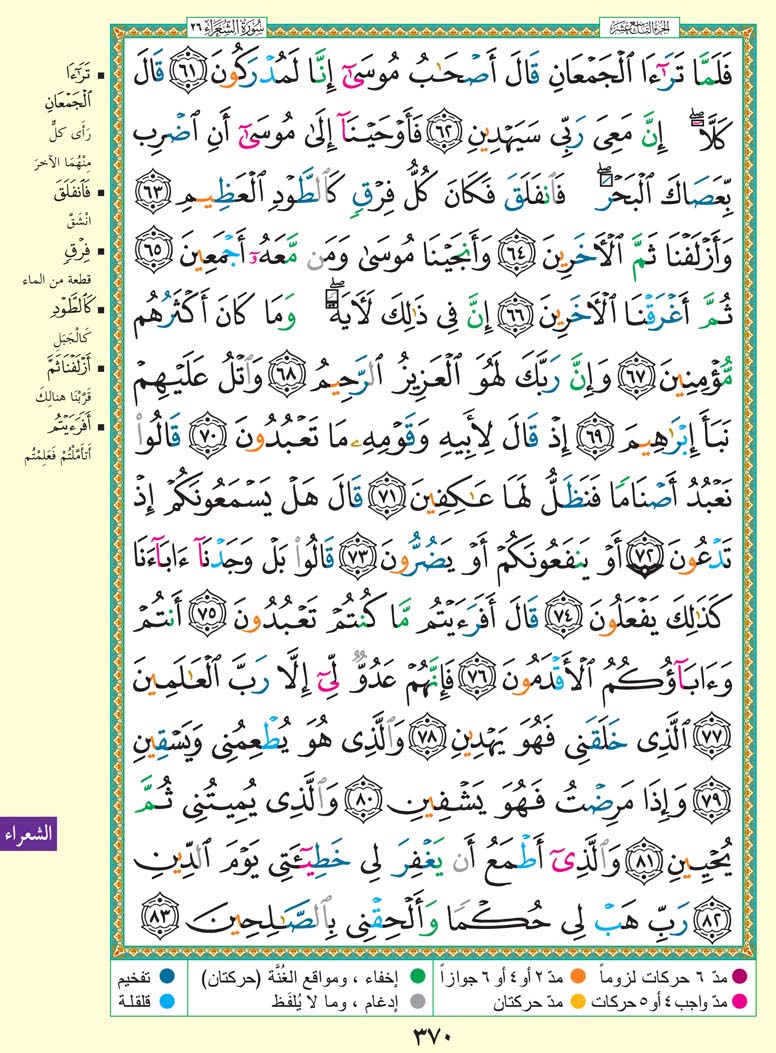 الجزء التاسع عشر
سورة الشعراء ٢٦
فَلَمَّا تَرَٰٓءَا ٱلْجَمْعَانِ قَالَ أَصْحَٰبُ مُوسَىٰٓ إِنَّا لَمُدْرَكُونَ ٦١ قَالَ
كَلَّآ إِنَّ مَعِىَ رَبِّى سَيَهْدِينِ ٦٢ فَأَوْحَيْنَآ إِلَىٰ مُوسَىٰٓ أَنِ ٱضْرِب
بِّعَصَاكَ ٱلْبَحْرَ فَٱنفَلَقَ فَكَانَ كُلُّ فِرْقٍ كَٱلطَّوْدِ ٱلْعَظِيمِ ٦٣
وَأَزْلَفْنَا ثَمَّ ٱلْءَاخَرِينَ ٦٤ وَأَنجَيْنَا مُوسَىٰ وَمَن مَّعَهُۥٓ أَجْمَعِينَ ٦٥
ثُمَّ أَغْرَقْنَا ٱلْءَاخَرِينَ ٦٦ إِنَّ فِى ذَٰلِكَ لَءَايَةً وَمَا كَانَ أَكْثَرُهُم
مُّؤْمِنِينَ ٦٧ وَإِنَّ رَبَّكَ لَهُوَ ٱلْعَزِيزُ ٱلرَّحِيمُ ٦٨ وَٱتْلُ عَلَيْهِمْ
نَبَأَ إِبْرَٰهِيمَ ٦٩ إِذْ قَالَ لِأَبِيهِ وَقَوْمِهِۦ مَا تَعْبُدُونَ ٧٠ قَالُوا۟
نَعْبُدُ أَصْنَامًا فَنَظَلُّ لَهَا عَٰكِفِينَ ٧١ قَالَ هَلْ يَسْمَعُونَكُمْ إِذْ
تَدْعُونَ ٧٢ أَوْ يَنفَعُونَكُمْ أَوْ يَضُرُّونَ ٧٣ قَالُوا۟ بَلْ وَجَدْنَآ ءَابَآءَنَا
كَذَٰلِكَ يَفْعَلُونَ ٧٤ قَالَ أَفَرَءَيْتُم مَّا كُنتُمْ تَعْبُدُونَ ٧٥ أَنتُمْ
وَءَابَآؤُكُمُ ٱلْأَقْدَمُونَ ٧٦ فَإِنَّهُمْ عَدُوٌّ لِّىٓ إِلَّا رَبَّ ٱلْعَٰلَمِينَ
٧٧ ٱلَّذِى خَلَقَنِى فَهُوَ يَهْدِينِ ٧٨ وَٱلَّذِى هُوَ يُطْعِمُنِى وَيَسْقِينِ
٧٩ وَإِذَا مَرِضْتُ فَهُوَ يَشْفِينِ ٨٠ وَٱلَّذِى يُمِيتُنِى ثُمَّ
يُحْيِينِ ٨١ وَٱلَّذِىٓ أَطْمَعُ أَن يَغْفِرَ لِى خَطِيٓـَٔتِى يَوْمَ ٱلدِّينِ
٨٢ رَبِّ هَبْ لِى حُكْمًا وَأَلْحِقْنِى بِٱلصَّٰلِحِينَ ٨٣
▪ تَرَٰٓءَا
ٱلْجَمْعَانِ
رَأَى كلٌّ
مِنْهُمَا الآخرَ
▪ فَٱنفَلَقَ
انْشَقَّ
▪ فِرْقٍ
قطعة من الماء
▪ كَٱلطَّوْدِ
كَالْجَبَلِ
▪ أَزْلَفْنَا ثَمَّ
قَرَّبْنا هنالِكَ
▪ أَفَرَءَيْتُم
أَتَأَمَّلْتُمْ فَعَلِمْتُم
الشعراء
● مدّ ٦ حركات لزوماً ● مدّ ٢ أو ٤ أو ٦ جوازاً ● إخفاء ، ومواقع الغُنَّة (حركتان) ● تفخيم
● مدّ واجب ٤ أو ٥ حركات ● مدّ حركتان ● إدغام ، وما لا يُلفَظ ● قلقلة
٣٧٠